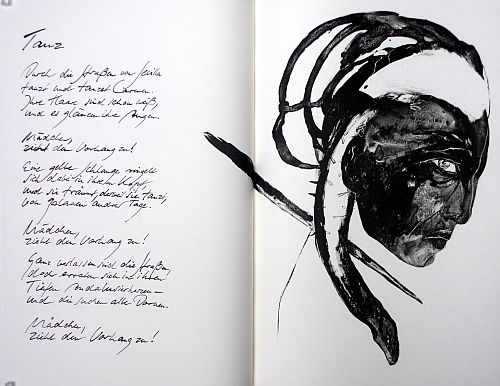 Tanz
Durch die Straßen von Sevilla
tanzt und tanzet Carmen.
Ihre Haare sind schon weiß
und es glänzen ihre Augen.
Mädchen,
zieht den Vorhang zu!
Eine gelbe Schlange ringelt
sich dabei in ihrem Kopf,
und sie träumt, derweil sie tanzt,
von galanen andrer Tage.
Mädchen,
zieht den Vorhang zu!
Ganz verlassen sind die Straßen,
doch erraten sich in ihren
Tiefen andalusierherzen –
und die suchen alte Dornen.
Mädchen,
zieht den Vorhang zu!